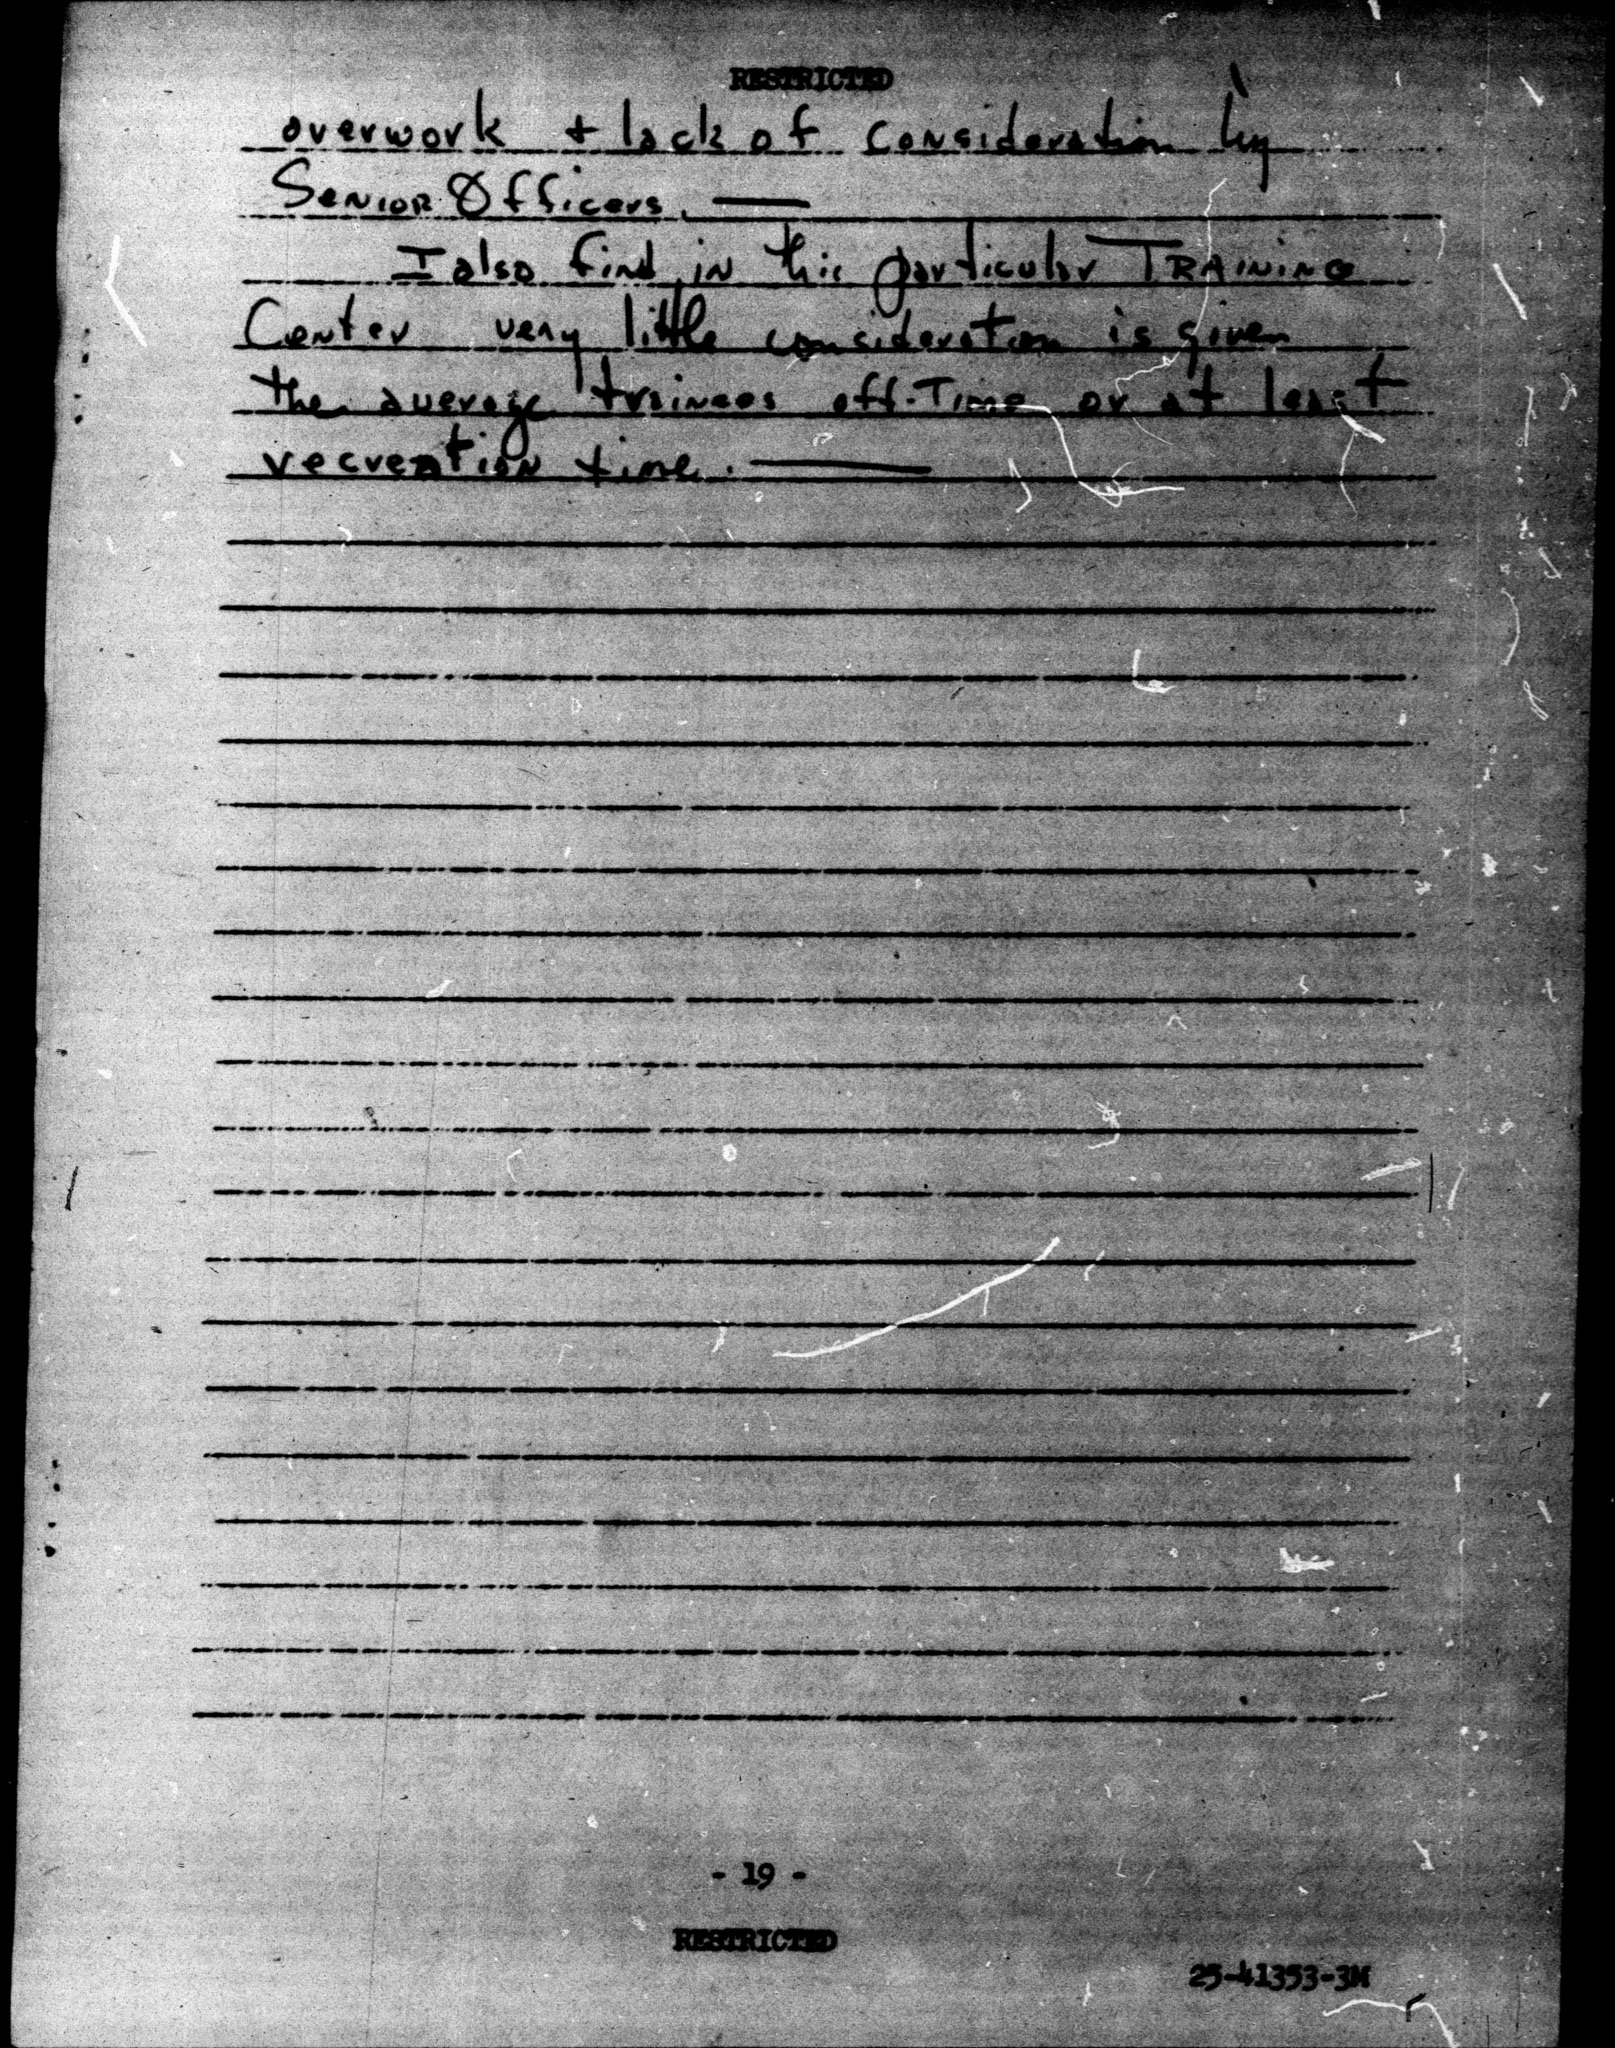 RESTRICTED
overwork + lack of consideration by
Senior Officers. —
I also find in this particular TRAINING
Center very little consideration is given
the average trainees off-Time or at least
recreation time. —
- 19 -
RESTRICTED
25-41353-3M